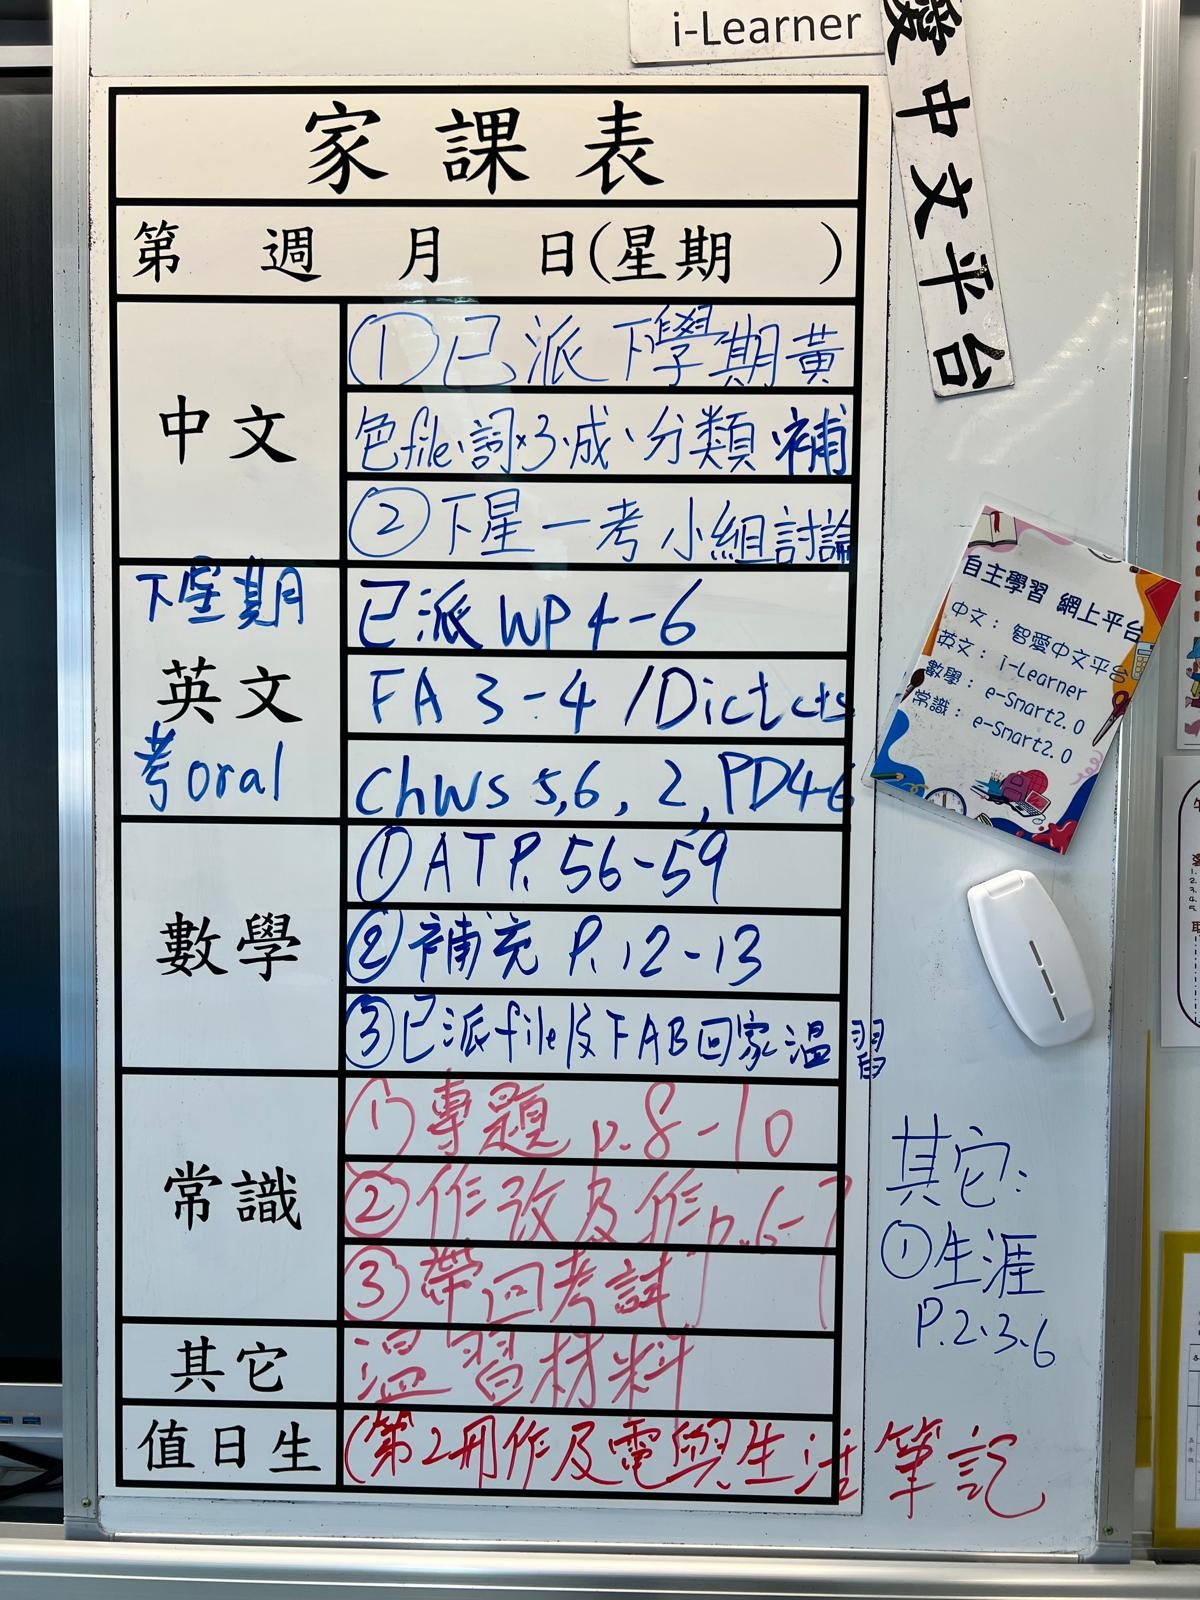 i-Learner
愛中文平台
家課表
第 週 月 日(星期 )
中文
①已派下學期黃
色file、詞×3、成、分類、補
②下星一考小組討論
下星期
英文
考oral
已派 WP 4-6
FA 3-4 / Dict cts
Ch WS 5,6, 2, PD4-6
數學
① AT P. 56-59
② 補充 P. 12-13
③ 已派file及FAB回家溫習
常識
① 專題 p.8-10
② 作改及作p.6-7
③ 帶回考試
其它
溫習材料
值日生
(第2冊作及電與生活筆記
其它:
① 生涯
P.2、3、6
自主學習 網上平台
中文: 智愛中文平台
英文: i-Learner
數學: e-Smart2.0
常識: e-Smart2.0